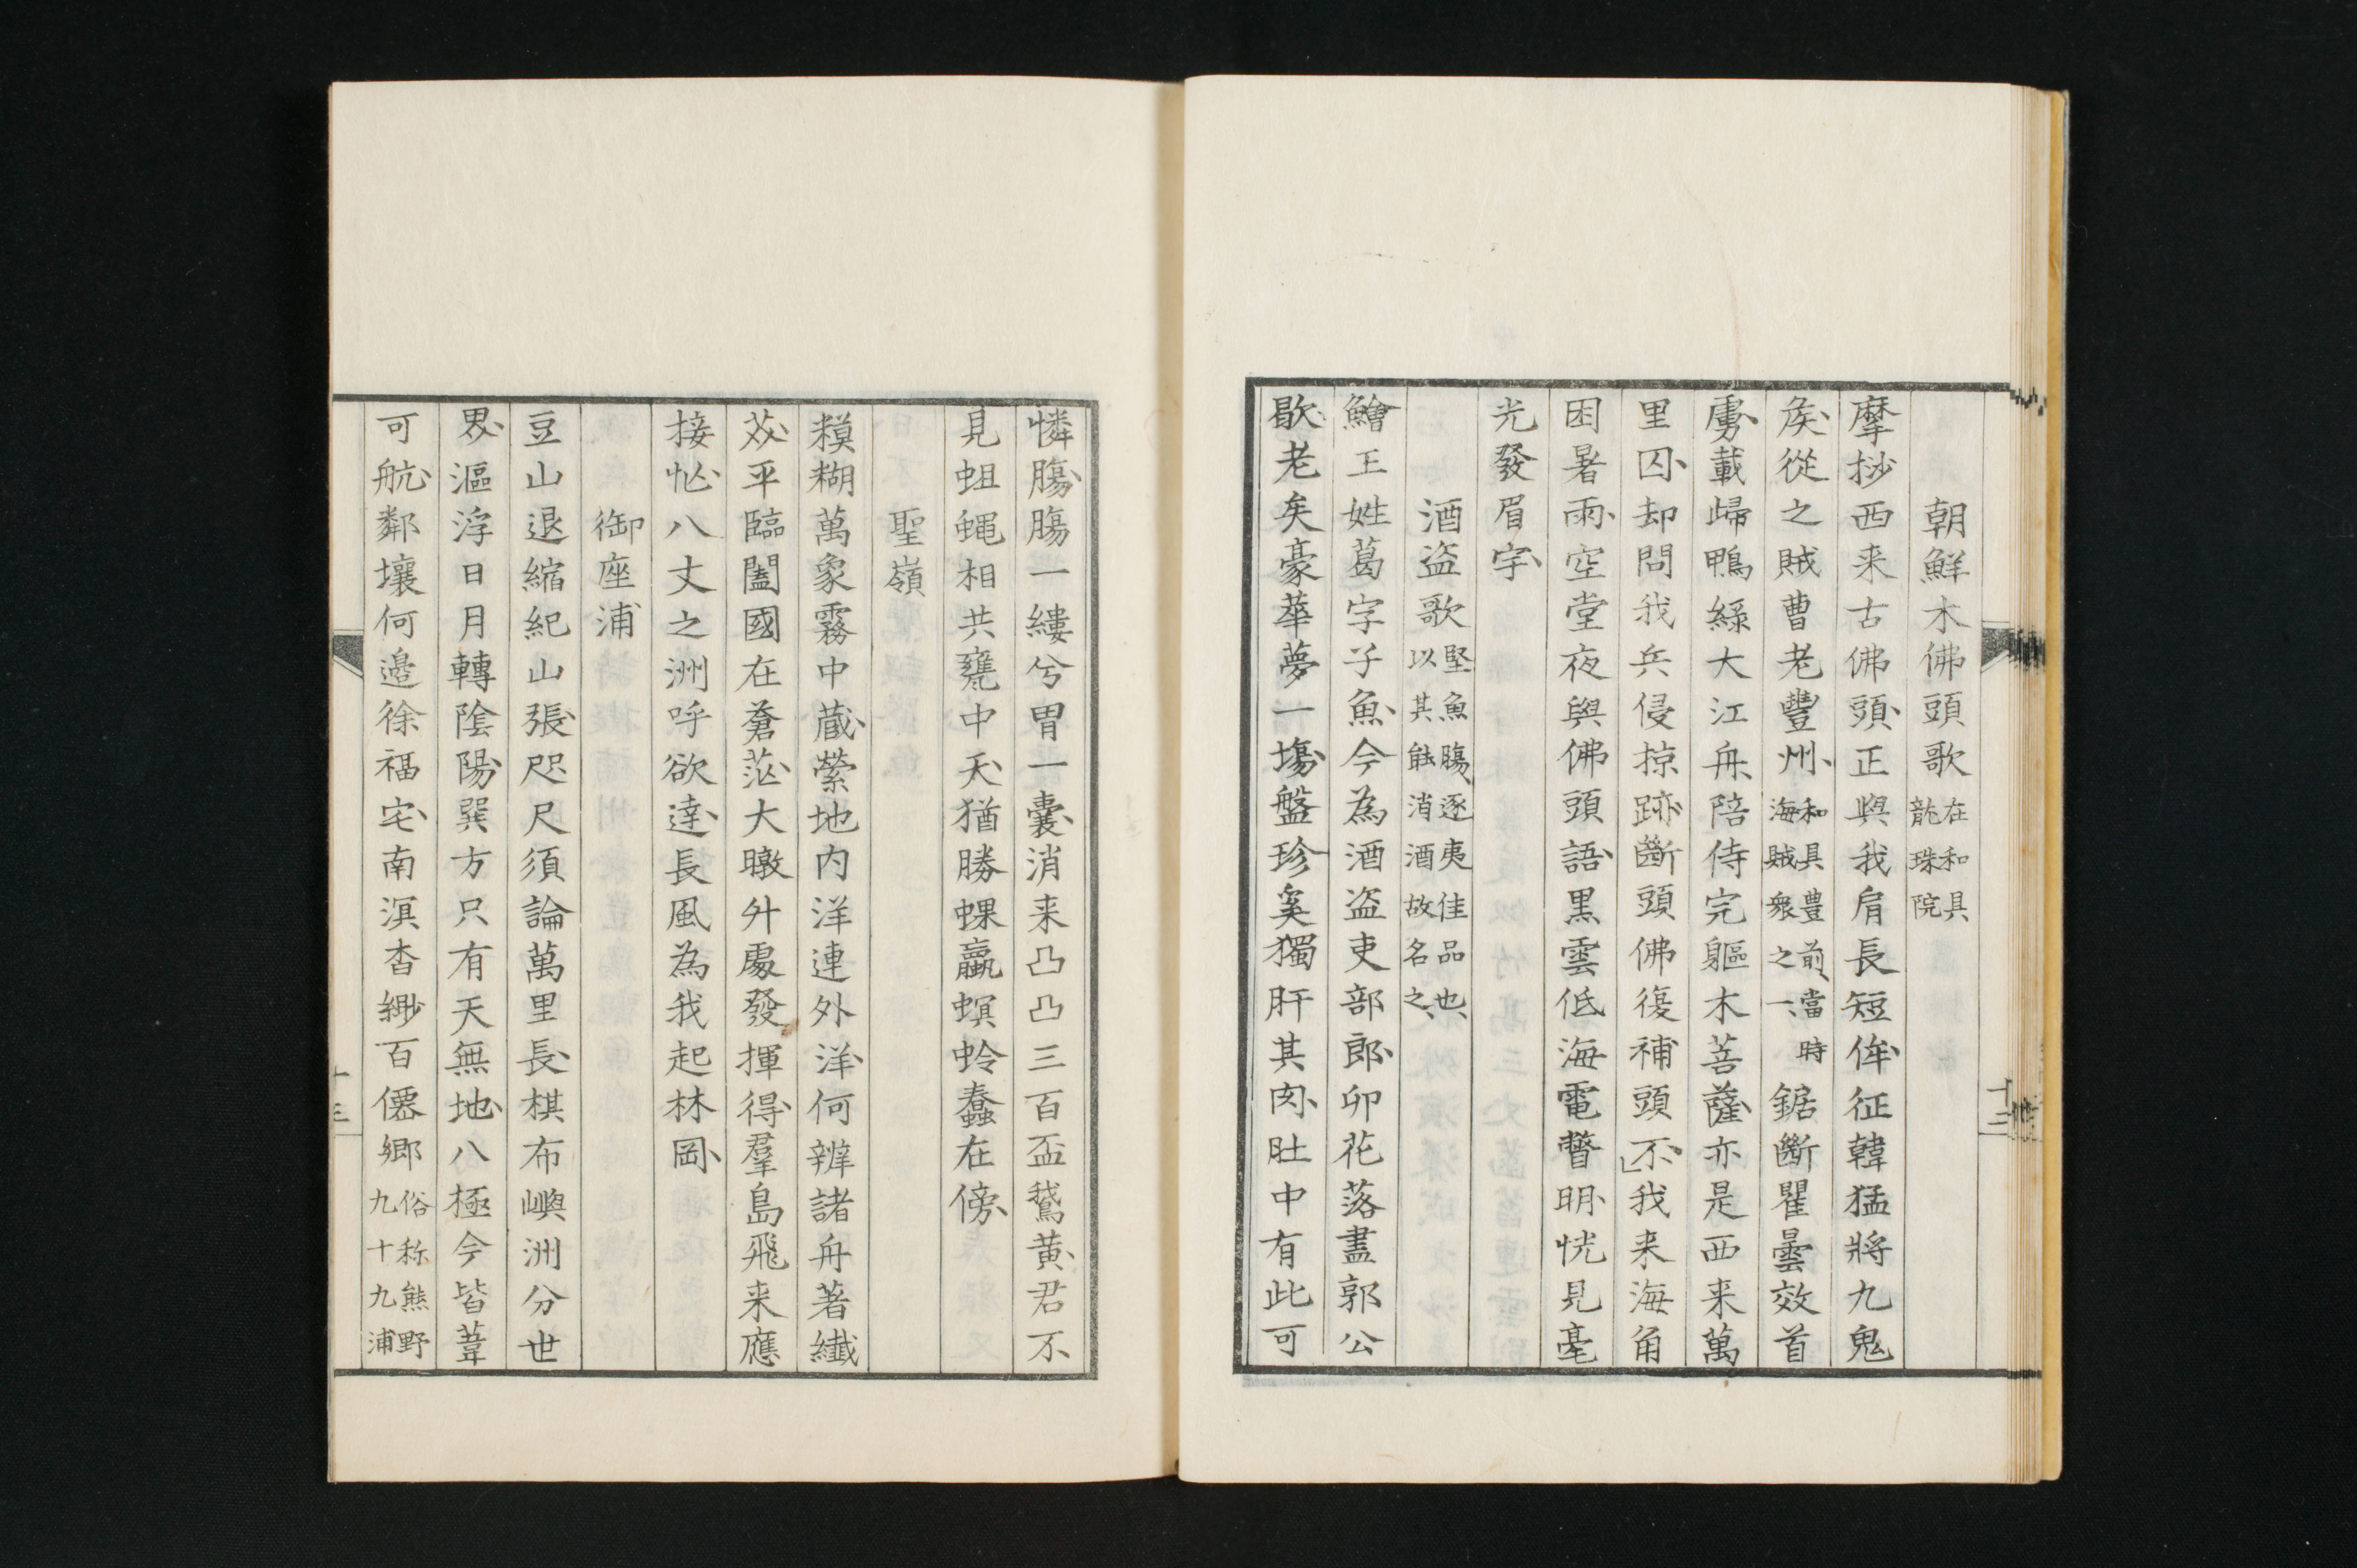 朝鮮木佛頭歌在和具龍珠院
摩挱西来古佛頭正與我肩長短侔征韓猛將九鬼
矦從之賊曹老豐州和具豊前當時海賊衆之一鋸斷瞿曇效首
虜載歸鴨緑大江舟陪侍完軀木菩薩亦是西来萬
里囚却問我兵侵掠跡斷頭佛復補頭不我来海角
困暑雨空堂夜與佛頭語黒雲低海電瞥明恍見毫
光發眉宇
酒盗歌堅魚腸逐夷佳品也以其能消酒故名之
鱠王姓葛字子魚今為酒盗吏部郎卯花落盡郭公
歇老矣豪華夢一塲盤珍奚獨肝其肉肚中有此可
憐腸腸一縷兮胃一囊消来凸凸三百盃鵞黄君不
見蛆蝿相共甕中夭猶勝蜾蠃螟蛉蠢在傍
聖嶺
糢糊萬象霧中蔵縈地内洋連外洋何辨諸舟著纎
芥平臨闔國在蒼茫大暾升處發揮得羣島飛来應
接忙八丈之洲呼欲達長風為我起林岡
御座浦
豆山退縮紀山張咫尺須論萬里長棋布嶼洲分世
界漚浮日月轉陰陽巽方只有天無地八極今皆葦
可航鄰壤何邉徐福宅南溟杳緲百僊郷俗称熊野九十九浦
十三
十三